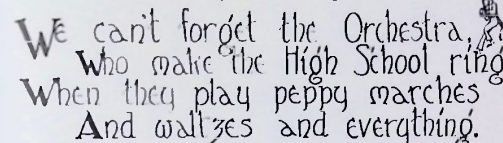 We can't forget the Orchestra,
Who make the High School ring
When they play peppy marches
And waltzes and everything.